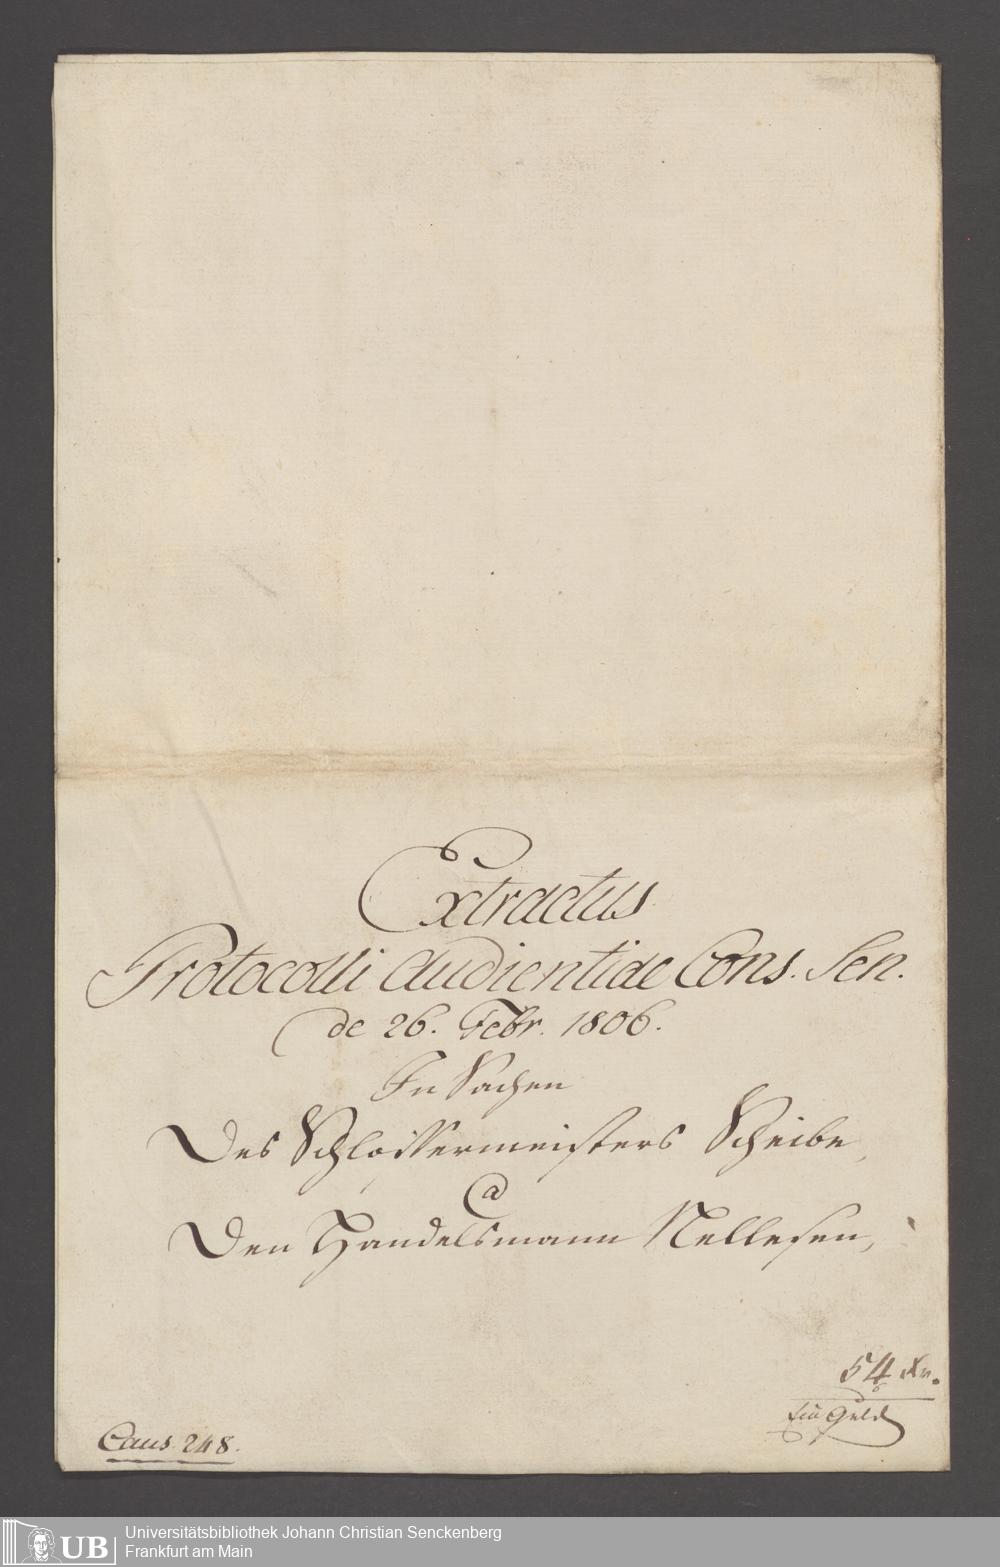 Extractus
Protocolli Audientiae Cons. Sen.
de 26. Febr. 1806.
In Sachen
Des Schlossermeisters Scheibe,
Ca
Den Handelsmann Nellesen,
54 Xr.
Ein Guld
Caus. 248.
UB
Universitätsbibliothek Johann Christian Senckenberg
Frankfurt am Main